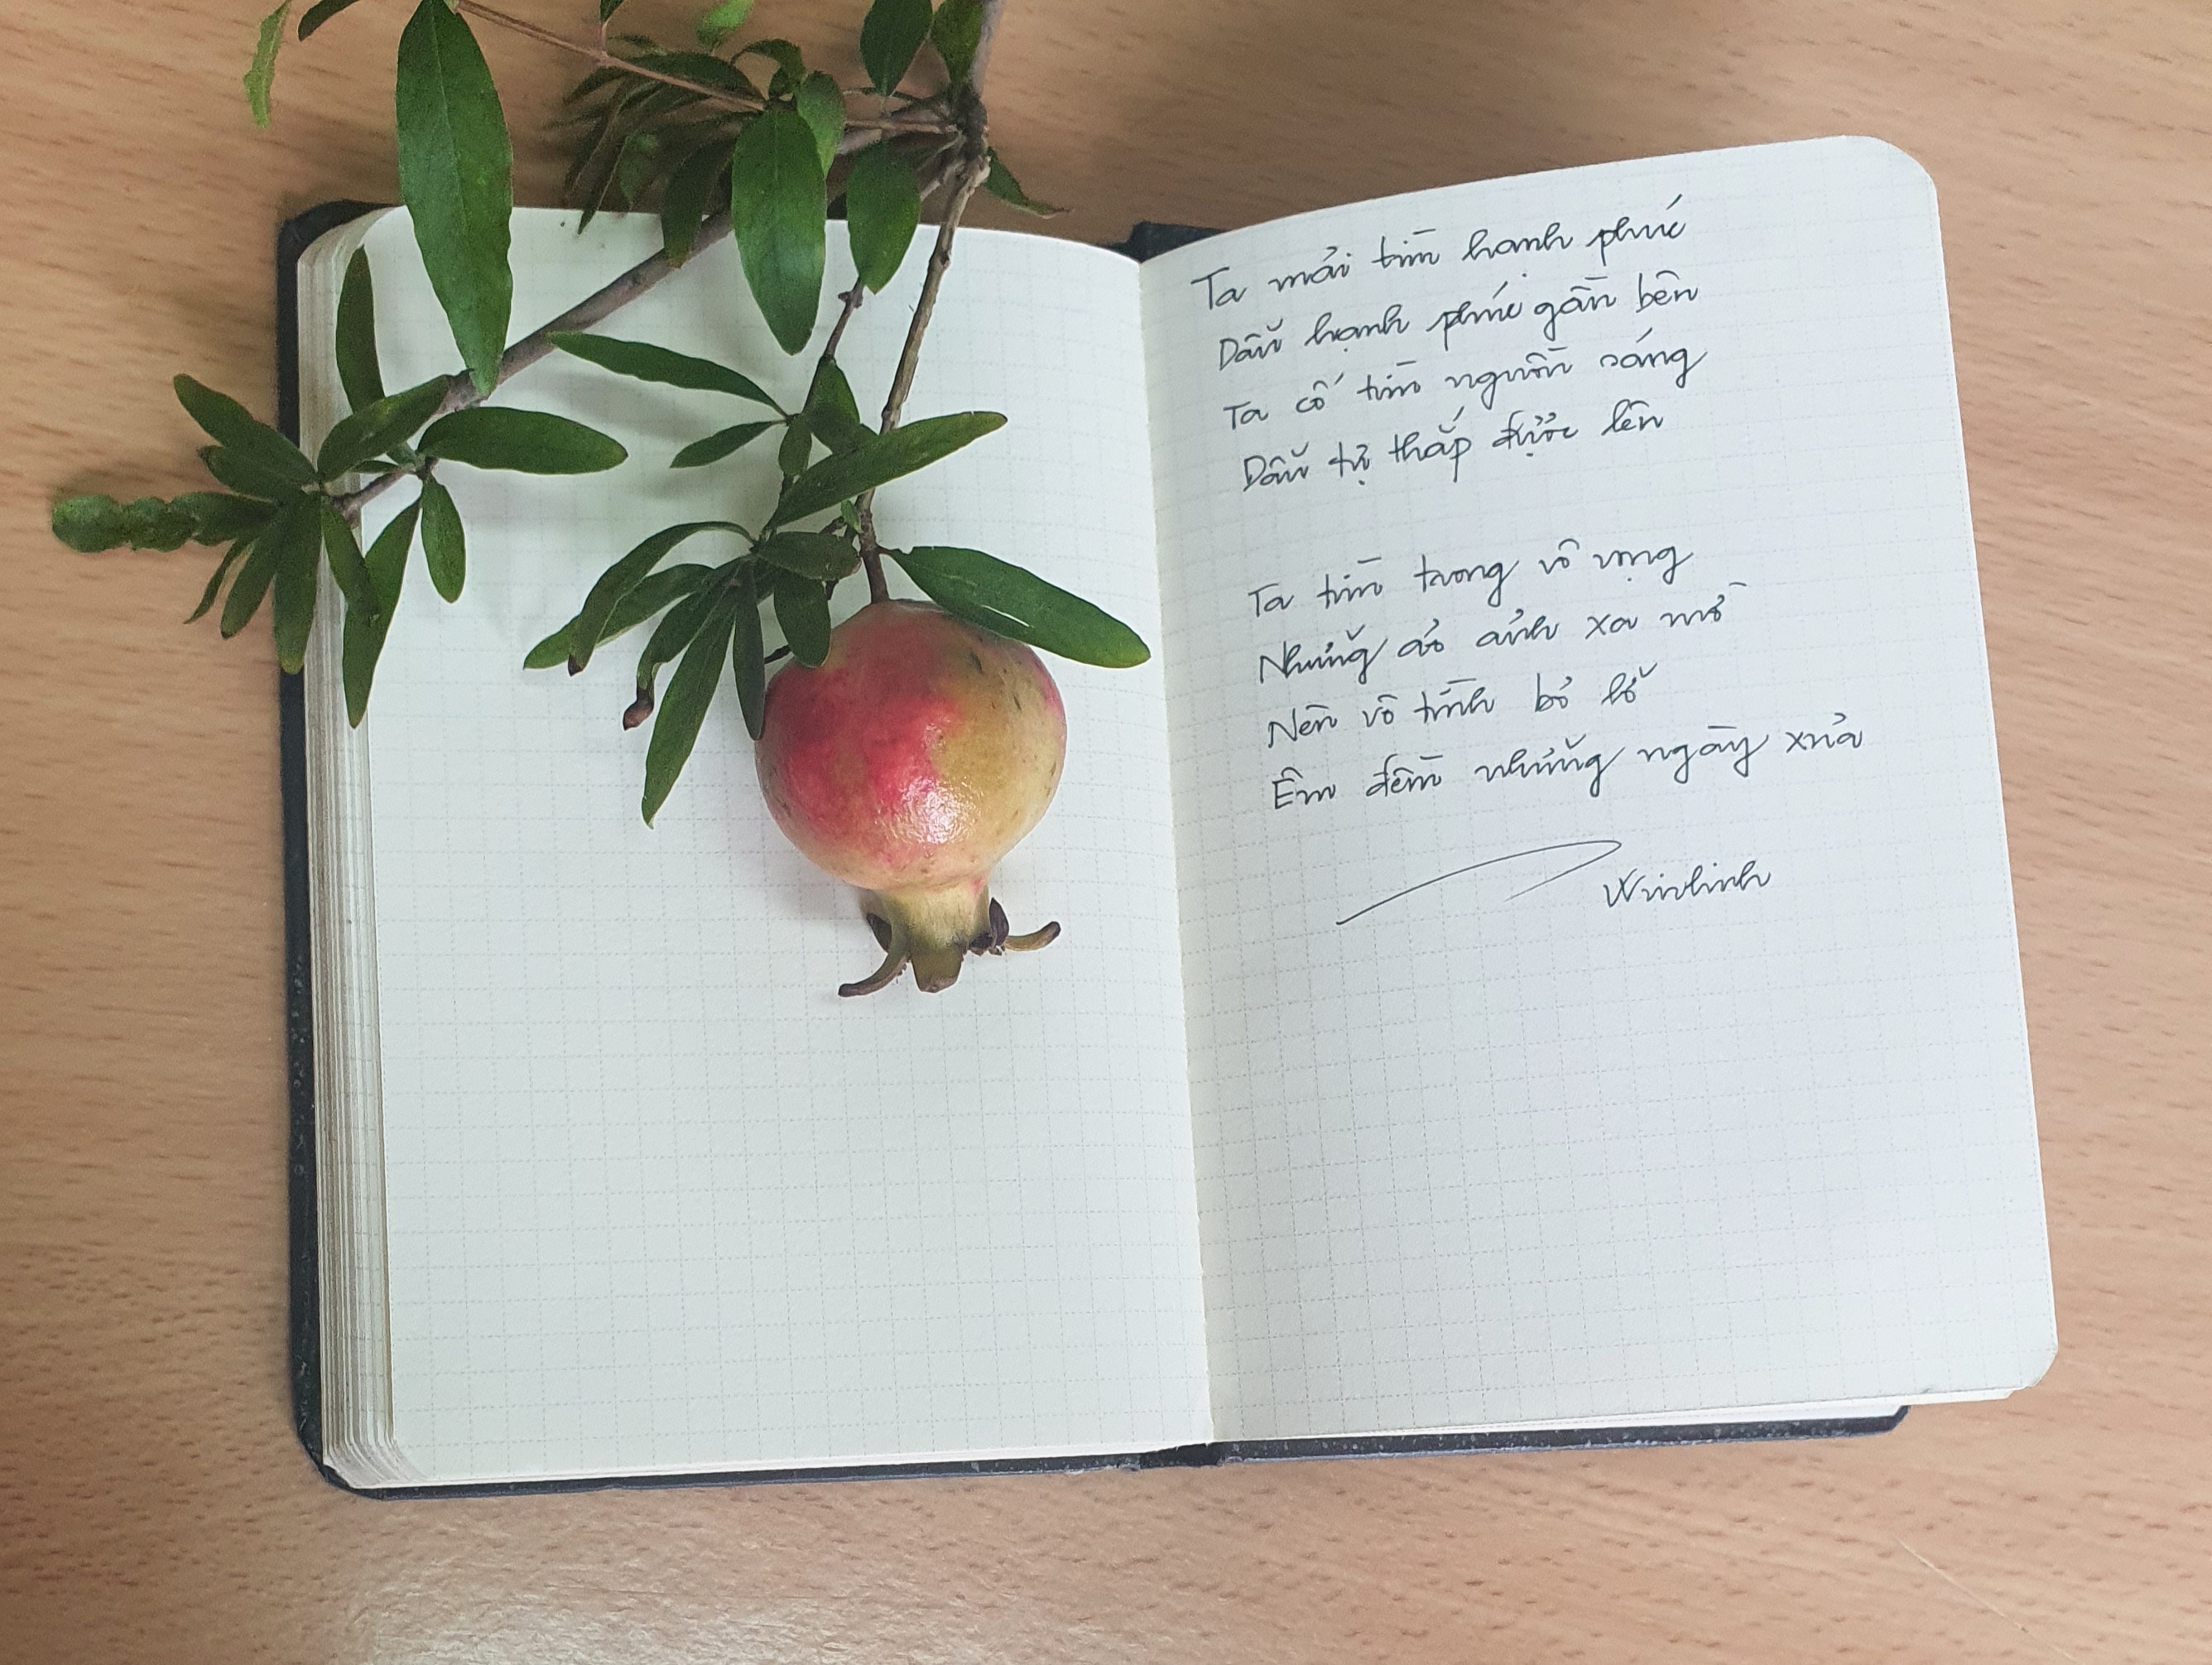 Ta mải tìm hạnh phúc
Dẫu hạnh phúc gần bên
Ta cố tìm nguồn sáng
Dẫu tự thắp được lên
Ta tìm trong vô vọng
Những ảo ảnh xa mờ
Nên vô tình bỏ lỡ
Êm đềm những ngày xưa
Winlinh